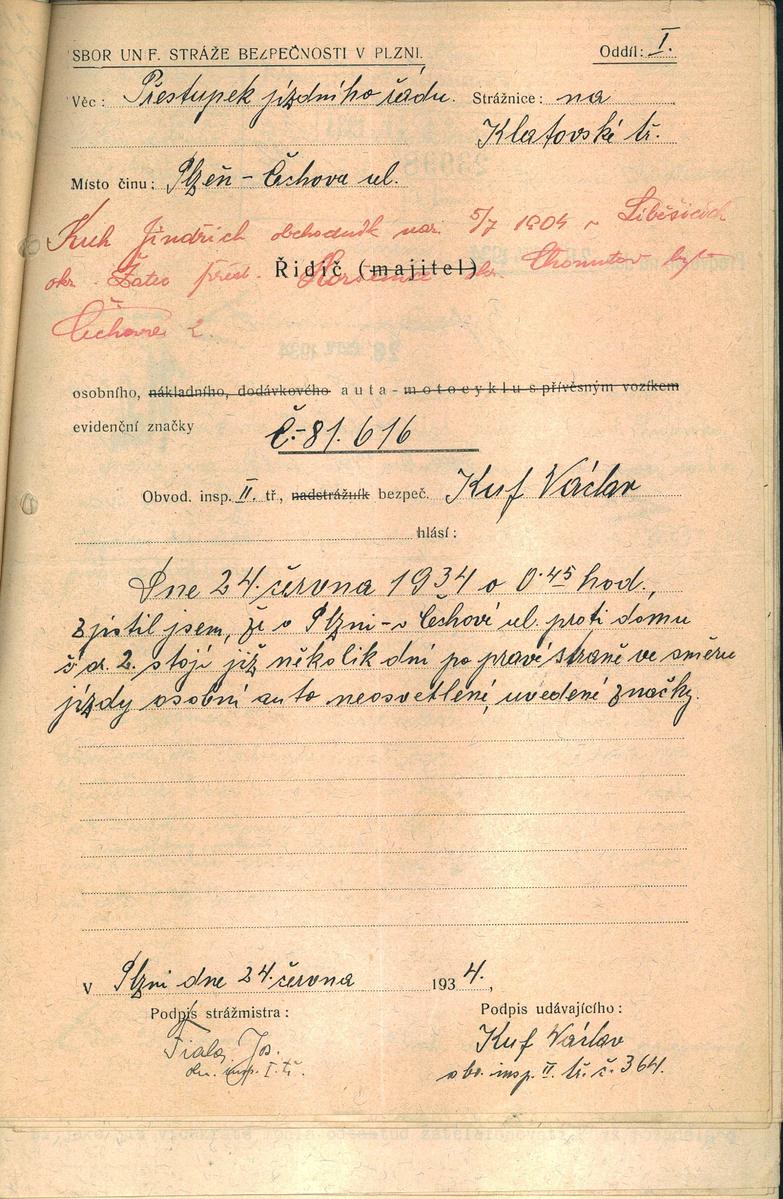 SBOR UNIF. STRÁŽE BEZPEČNOSTI V PLZNI. Oddíl: I.
Věc: Přestupek jízdního řádu. Strážnice: na
Klatovské tř.
Místo činu: Plzeň – Čechova ul.
Kuh Jindřich obchodník nar. 5/7 1904 v Liběšicích
okr. Žatec přísl. okr. Chomutov byt.
Čechova 2.
Řidič (majitel)
osobního, nákladního, dodávkového auta - motocyklu s přívěsným vozíkem
evidenční značky Č.-81.616
Obvod. insp. II. tř., nadstrážník bezpeč. Kuf Václav
hlásí:
Dne 24. června 1934 o 0.45 hod.,
zjistil jsem, že v Plzni - v Čechově ul. proti domu
č. 2. stojí již několik dní po pravé straně ve směru
jízdy osobní auto neosvětlené, uvedené značky.
V Plzni dne 24. června 1934.,
Podpis strážmistra: Podpis udávajícího:
Fiala Jos. Kuf Václav
insp. I. tř. obv. insp. II. tř. č. 364.